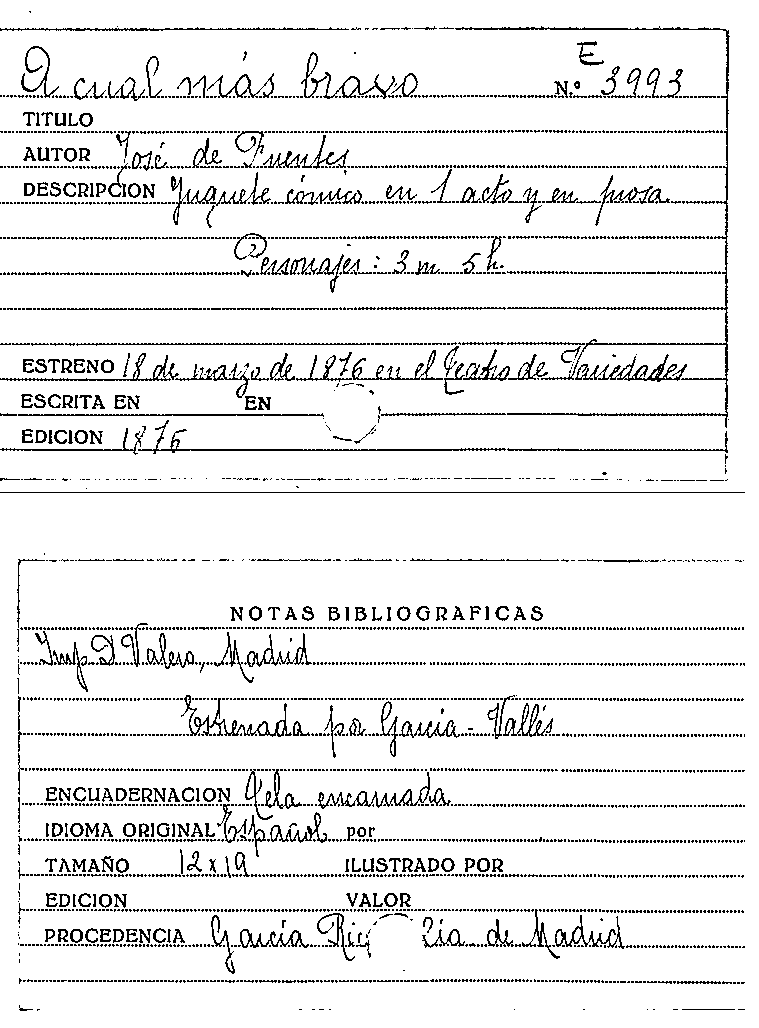 E
A cual más bravo N.º 3993
TITULO
AUTOR José de Fuentes
DESCRIPCION Juguete cómico en 1 acto y en prosa.
Personajes: 3 m 5 h.
ESTRENO 18 de marzo de 1876 en el Teatro de Variedades
ESCRITA EN EN
EDICION 1876
NOTAS BIBLIOGRAFICAS
Imp. D. Valero, Madrid
Estrenada por García - Vallés
ENCUADERNACION Tela encarnada
IDIOMA ORIGINAL Español por
TAMAÑO 12x19 ILUSTRADO POR
EDICION VALOR
PROCEDENCIA García Ric de Madrid